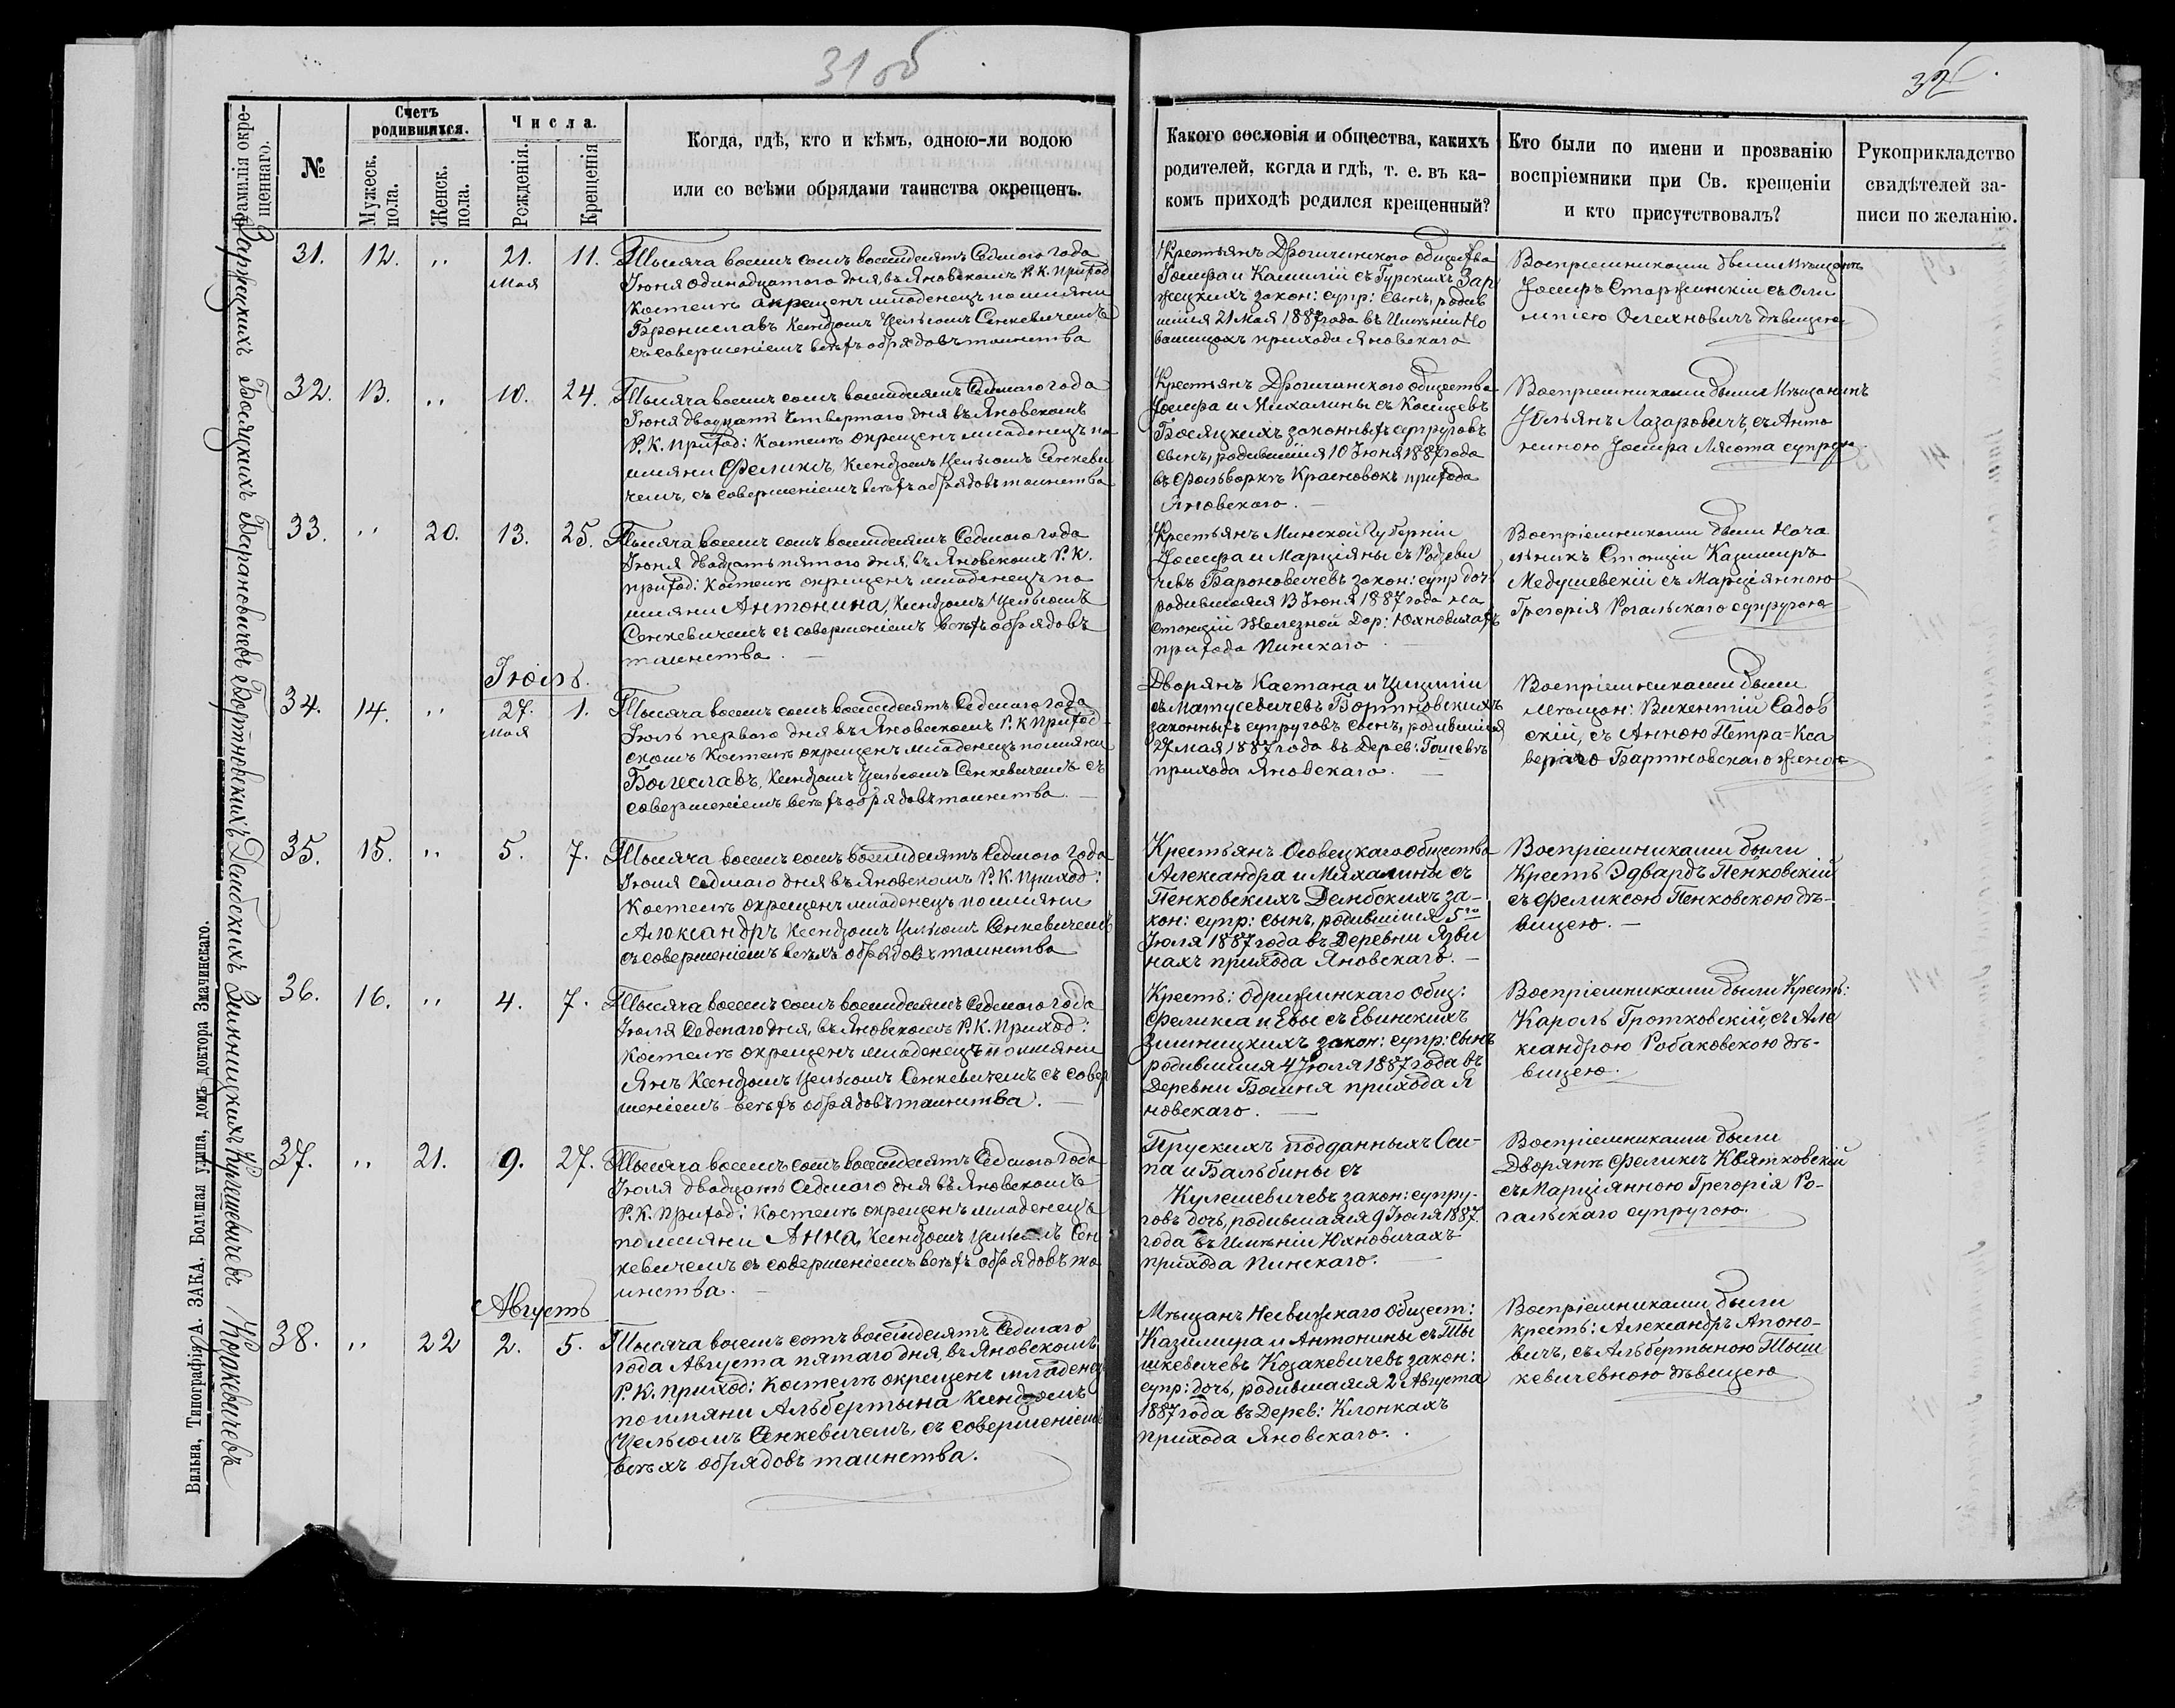 31 об
32
Фамилія окре-
щеннаго.
№
Счетъ
родившихся.
Мужеск.
пола.
Женск.
пола.
Числа.
Рожденія.
Крещенія
Когда, гдѣ, кто и кѣмъ, одною-ли водою
или со всѣми обрядами таинства окрещенъ.
Какого сословія и общества, какихъ
родителей, когда и гдѣ, т. е. въ ка-
комъ приходѣ родился крещенный?
Кто были по имени и прозванію
воспріемники при Св. крещеніи
и кто присутствовалъ?
Рукоприкладство
свидѣтелей за-
писи по желанію.
Заржецкихъ
31. 12. " 21. 11.
Мая
Тысяча восемь сотъ восемдесятъ Седмого года
Іюня одинадцатого дня, въ Яновскомъ Р. К. Приход
Костелѣ окрещенъ младенецъ по имяни
Брониславъ Ксендзомъ Цельсомъ Сенкевичемъ
съ совершеніемъ всѣхъ обрядовъ таинства
Крестьянъ Дрогичинского общества
Іосифа и Камиліи съ Гурскихъ Зар
жецкихъ закон: супр: сынъ, родив
шійся 21 Мая 1887 года въ Имѣніи Но
прихода Яновскаго
Воспріемниками были Мѣщанинъ
Іосифъ Старжинскій съ Оли
мпіею дѣвицею
Босяцкихъ
32. 13. " 10. 24.
Тысяча восемь сотъ восемдесятъ Седмаго года
Іюня двадцать Четвертаго дня въ Яновскомъ
Р. К. Приход: Костелѣ окрещенъ младенецъ по
имяни Феликсъ, Ксендзомъ Цельсомъ Сенкеви
чемъ, съ совершеніемъ всѣхъ обрядовъ таинства
Крестьянъ Дрогичинского общества
Іосифа и Михалины съ
Босяцкихъ законныхъ супруговъ
сынъ, родившійся 10 Іюня 1887 года
въ Фольваркѣ прихода
Яновскаго.
Воспріемниками были Мѣщанинъ
Юльянъ Лазаровичъ, съ Анто
ниною Іосифа Лясота супруг
Барановичовъ
33. " 20. 13. 25.
Тысяча восемь сотъ восемдесятъ Седмого года
Іюня двадцать пятого дня, въ Яновскомъ Р. К.
приход: Костелѣ окрещенъ младенецъ по
имяни Антонина, Ксендзомъ Цельсомъ
Сенкевичемъ съ совершеніемъ всѣхъ обрядовъ
таинства.
Крестьянъ Минской Губерніи
Іосифа и Марціяны съ Родзеви
чевъ Бароновичевъ закон: супр дочь
родившаяся 13 Іюня 1887 года на
Станціи Железной Дор: Юхновичахъ
прихода Пинскаго
Воспріемниками были Нача
льникъ Станціи Казимиръ
Медушевскій съ Марціянною
Грегорія Рогальскаго супругою
Бортновскихъ
Іюль.
34. 14. " 27. 1.
Мая
Тысяча восемь сотъ восемдесятъ Седмаго года
Іюль первого дня въ Яновскомъ Р. К Приход
скомъ Костелѣ окрещенъ младенецъ по имяни
Болеславъ, Ксендзомъ Цельсомъ Сенкевичемъ съ
совершеніемъ всѣхъ обрядовъ таинства.
Дворянъ Каетана и
съ Матусевичевъ Бортновскихъ
законныхъ супруговъ сынъ, родившійся
27 мая 1887 года въ Дерев:
прихода Яновскаго.
Воспріемниками были
Мѣщан: Викентій Садов
скій, съ Анною Петра=Кса
веріаго Бартновскаго женою
Дембскихъ
35. 15. " 5. 7.
Тысяча восемь сотъ восемдесятъ Седмого года
Іюля Седмаго дня въ Яновскомъ Р. К. Приход:
Костелѣ окрещенъ младенецъ по имяни
Александръ Ксендзомъ Цельсомъ Сенкевичемъ
съ совершеніемъ всѣхъ обрядовъ таинства
Крестьянъ Осовецкаго общества
Александра и Михалины съ
Пенковскихъ Дембскихъ за-
кон: супр: сынъ, родившійся 5го
Іюля 1887 года въ Деревни Язви
нахъ прихода Яновскаго.
Воспріемниками были
Крестъ Эдвардъ Пенковскій
съ Феликсою Пенковскою дѣ-
вицею.
Зинницкихъ
36. 16. " 4. 7.
Тысяча восемь сотъ восемдесятъ Седмого года
Іюля Седмаго дня, въ Яновскомъ Р. К. Приход:
Костелѣ окрещенъ младенецъ по имяни
Янъ Ксендзомъ Цельсомъ Сенкевичемъ съ совер
шеніемъ всѣхъ обрядовъ таинства.
Крестъ: Одрижинскаго Общ:
Феликса и Евы съ Евинскихъ
Зинницкихъ закон: супр: сынъ
родившійся 4 Іюля 1887 года въ
Деревни прихода Я
новскаго.
Воспріемниками были Крестъ:
Кароль Гротковскій, съ Але
ксандрою Робаковскою дѣ-
вицею.
Кулешевичевъ
37. " 21. 9. 27.
Тысяча восемь сотъ восемдесятъ Седмого года
Іюля двадцать Седмого дня въ Яновскомъ
Р. К. Приход: Костелѣ окрещенъ младенецъ
по имяни Анна, Ксендзомъ Цельсомъ Сен
кевичемъ съ совершеніемъ всѣхъ обрядовъ та
инства.
Прускихъ подданныхъ Оси-
па и Бальбины съ
Кулешевичевъ закон: супру-
говъ дочь, родившаяся 9 Іюля 1887.
года въ Имѣніи Юхновичахъ
прихода Пинскаго.
Воспріемниками были
Дворянъ Феликсъ Квятковскій
съ Марціянною Грегорія Ро-
гальскаго супругою.
Козакевичевъ
Августъ
38. " 22 2. 5.
Тысяча восемь сотъ восемдесятъ Седмаго
года Августа пятаго дня, въ Яновскомъ
Р. К. Приход: Костелѣ окрещенъ младенец
по имяни Альбертына Ксендзомъ
Цельсомъ Сенкевичемъ, съ совершеніемъ
всѣхъ обрядовъ таинства.
Мѣщанъ Несвижскаго Общест:
Казимира и Антонины съ Ты
шкевичевъ Козакевичевъ закон:
супр: дочь, родившаяся 2 Августа
1887 года въ Дерев: Клонкахъ
прихода Яновскаго.
Воспріемниками были
крестъ: Александръ Апоно-
вичъ, съ Альбертыною Тыш
кевичевною дѣвицею
Вильна, Типографія А. ЗАКА, Большая улица, домъ доктора Змачинскаго.